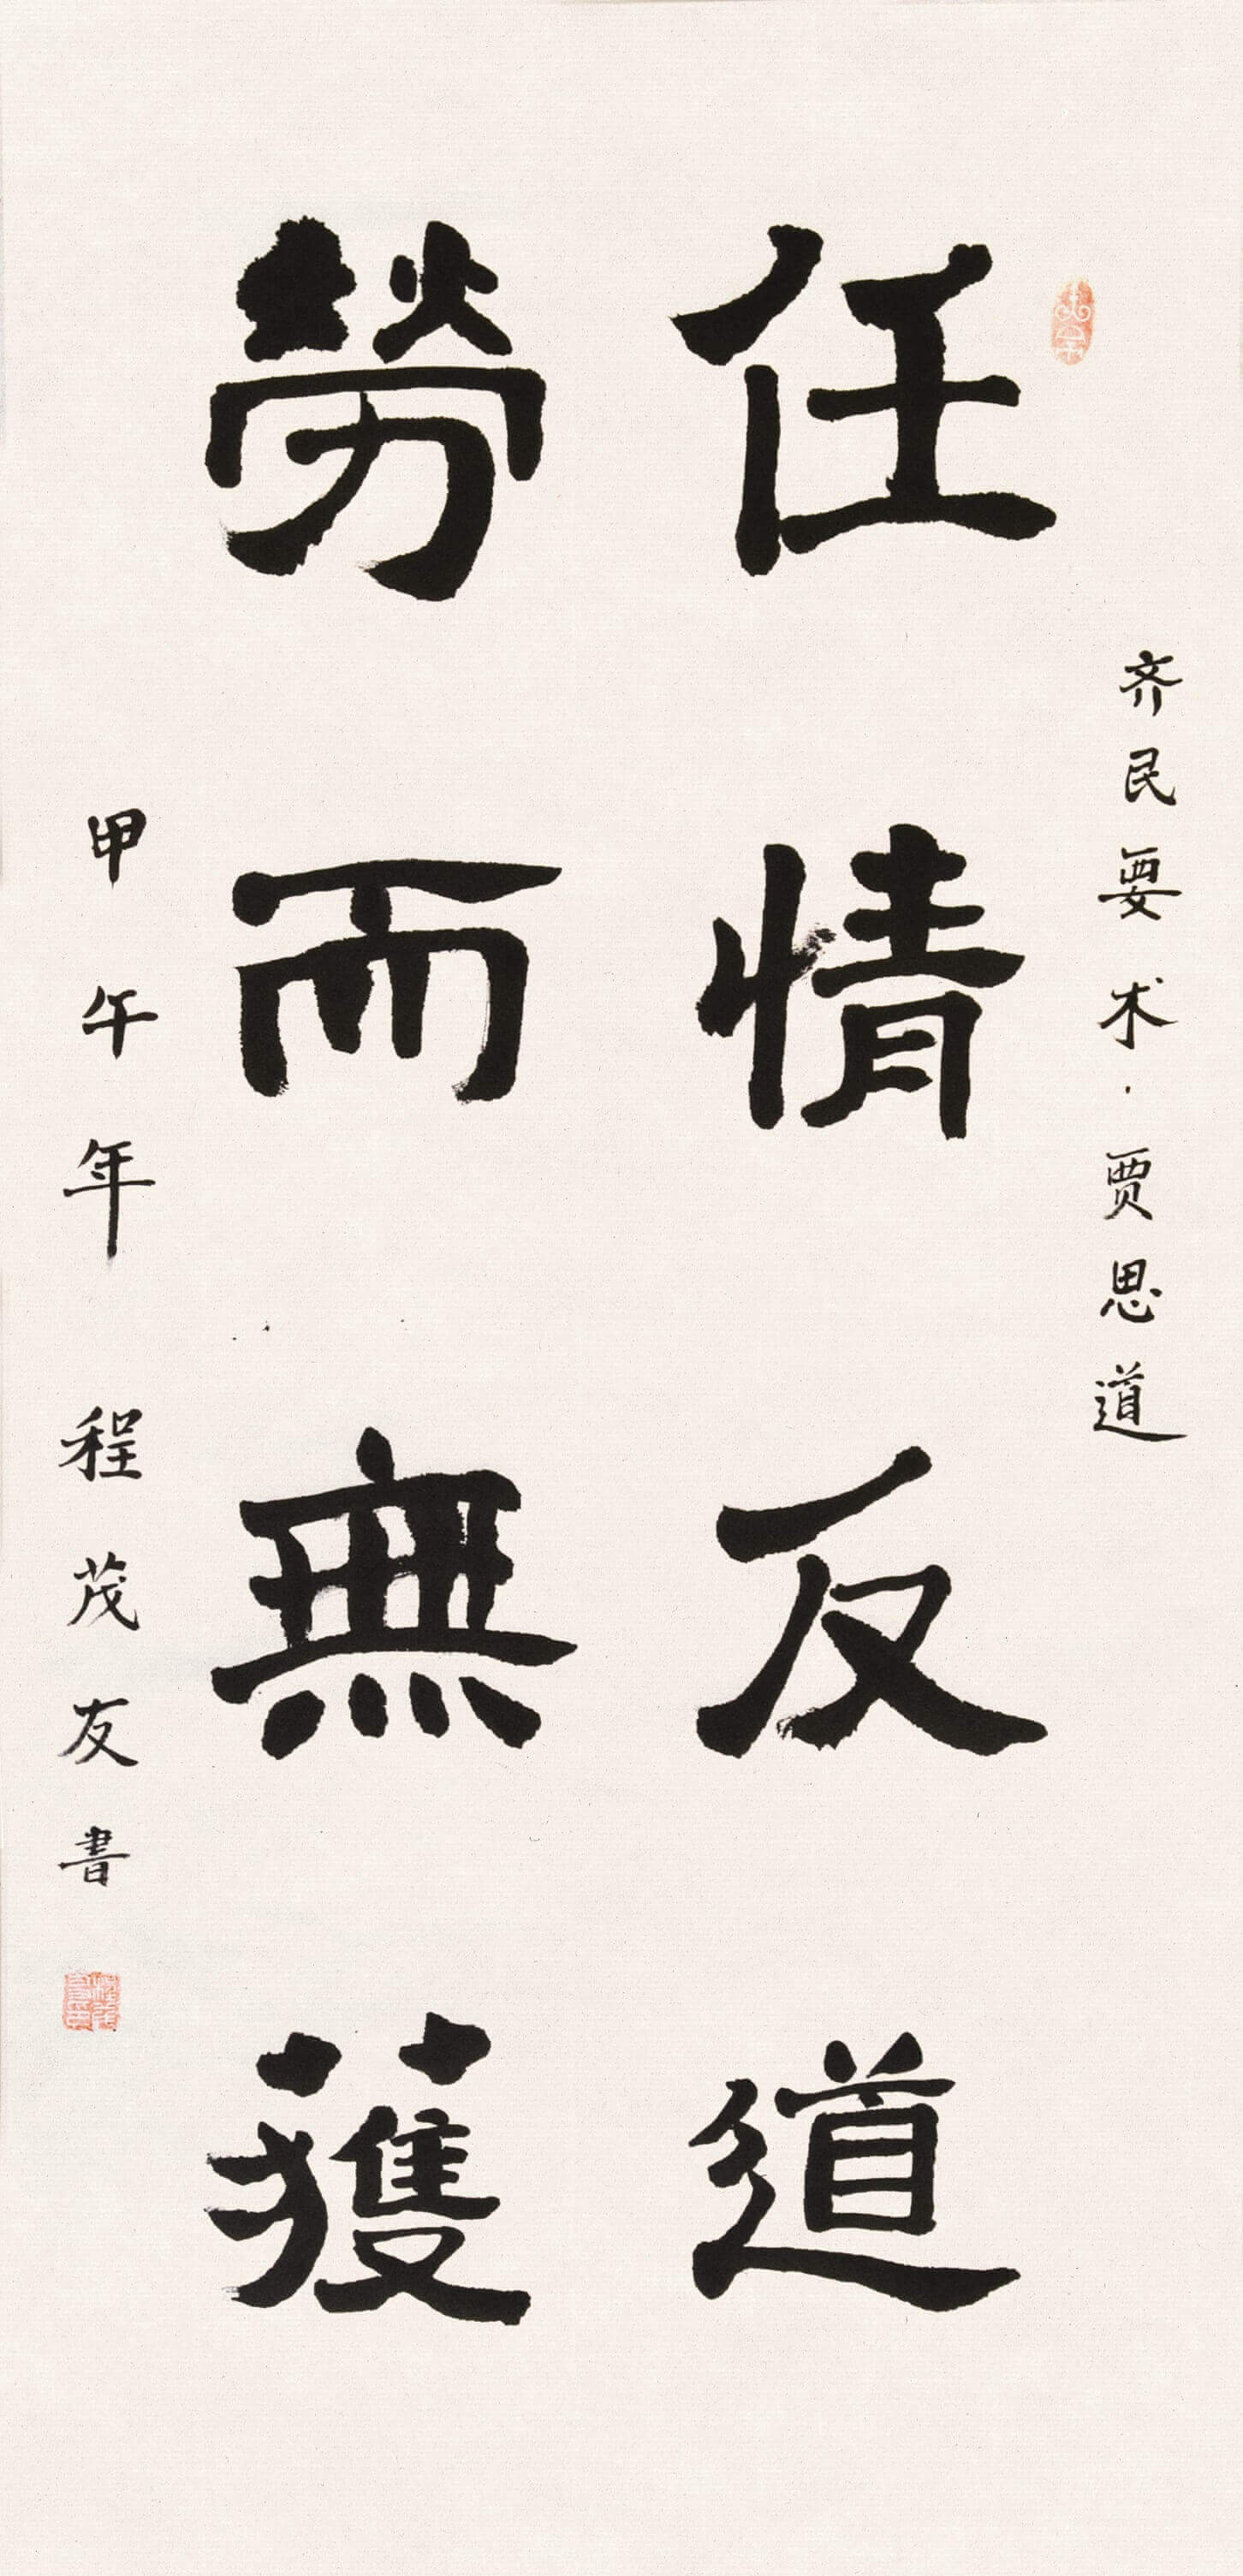 齐民要术·贾思道
任情反道
勞而無獲
甲午年 程茂友書